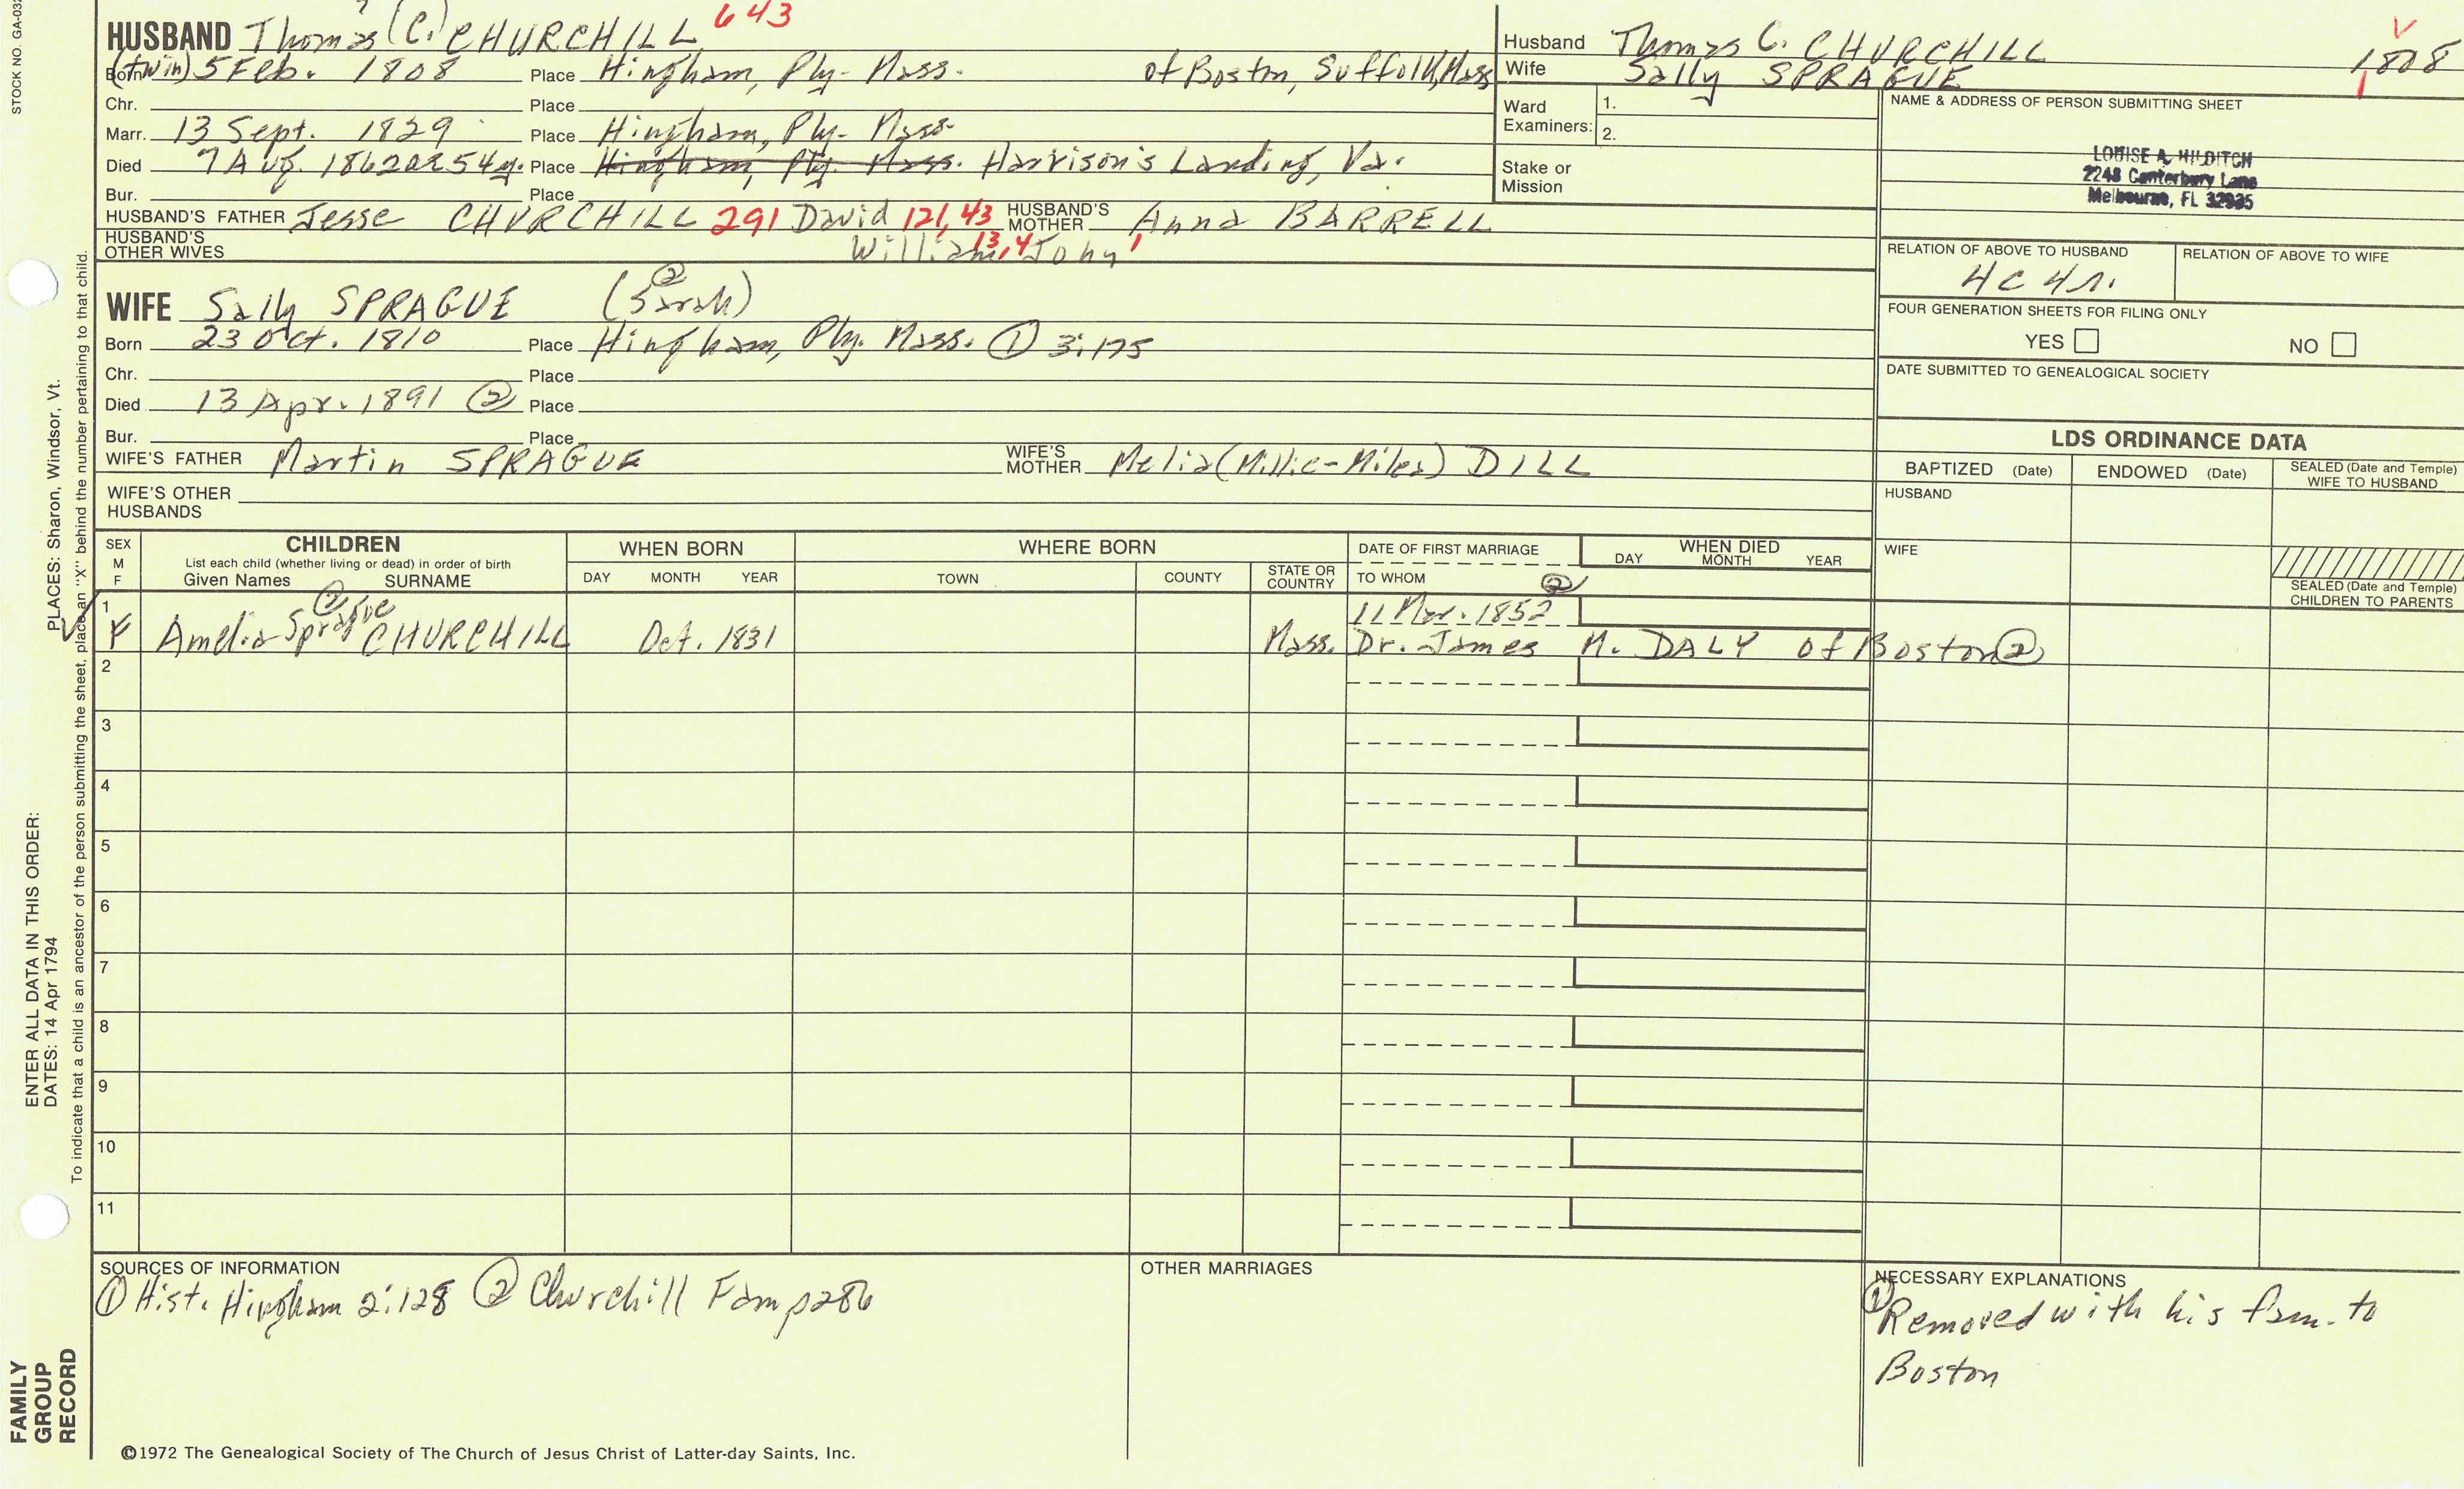 STOCK NO. GA-032
?
HUSBAND Thomas (C.) CHURCHILL 643
Born (twin) 5 Feb. 1808 Place Hingham, Ply- Mass. of Boston, Suffolk, Mass
Chr. Place
Marr. 13 Sept. 1829 Place Hingham, Ply- Mass-
Died 7 Aug. 1862 ae 54y. Place Hingham, Ply- Mass. Harrison's Landing, Va.
Bur. Place
HUSBAND'S FATHER Jesse CHURCHILL 291 David 121, 43 HUSBAND'S MOTHER Anna BARRELL
HUSBAND'S OTHER WIVES William 13, 4 John 1
Husband Thomas C. CHURCHILL V 1808
Wife Sally SPRAGUE
Ward Examiners: 1.
2.
Stake or Mission
NAME & ADDRESS OF PERSON SUBMITTING SHEET
LOUISE A. HILDITCH
2248 Canterbury Lane
Melbourne, FL 32935
RELATION OF ABOVE TO HUSBAND
4C 4r.
RELATION OF ABOVE TO WIFE
FOUR GENERATION SHEETS FOR FILING ONLY
YES NO
DATE SUBMITTED TO GENEALOGICAL SOCIETY
WIFE Sally SPRAGUE (Sarah) ②
Born 23 Oct. 1810 Place Hingham, Ply. Mass. ① 3:175
Chr. Place
Died 13 Apr. 1891 ② Place
Bur. Place
WIFE'S FATHER Martin SPRAGUE WIFE'S MOTHER Melia (Millie-Miles) DILL
WIFE'S OTHER HUSBANDS
LDS ORDINANCE DATA
BAPTIZED (Date) ENDOWED (Date) SEALED (Date and Temple) WIFE TO HUSBAND
HUSBAND
WIFE
SEALED (Date and Temple) CHILDREN TO PARENTS
SEX M F
CHILDREN
List each child (whether living or dead) in order of birth
Given Names SURNAME
WHEN BORN
DAY MONTH YEAR
WHERE BORN
TOWN COUNTY STATE OR COUNTRY
DATE OF FIRST MARRIAGE
TO WHOM
WHEN DIED
DAY MONTH YEAR
1 F Amelia Sprague ② CHURCHILL Oct. 1831 Mass. 11 Mar. 1852 ②
Dr. James M. DALY of Boston ②
2
3
4
5
6
7
8
9
10
11
SOURCES OF INFORMATION
① Hist. Hingham 2:128 ② Churchill Fam p286
OTHER MARRIAGES
NECESSARY EXPLANATIONS
① Removed with his fam. to
Boston
©1972 The Genealogical Society of The Church of Jesus Christ of Latter-day Saints, Inc.
FAMILY GROUP RECORD
ENTER ALL DATA IN THIS ORDER:
DATES: 14 Apr 1794
PLACES: Sharon, Windsor, Vt.
To indicate that a child is an ancestor of the person submitting the sheet, place an "X" behind the number pertaining to that child.